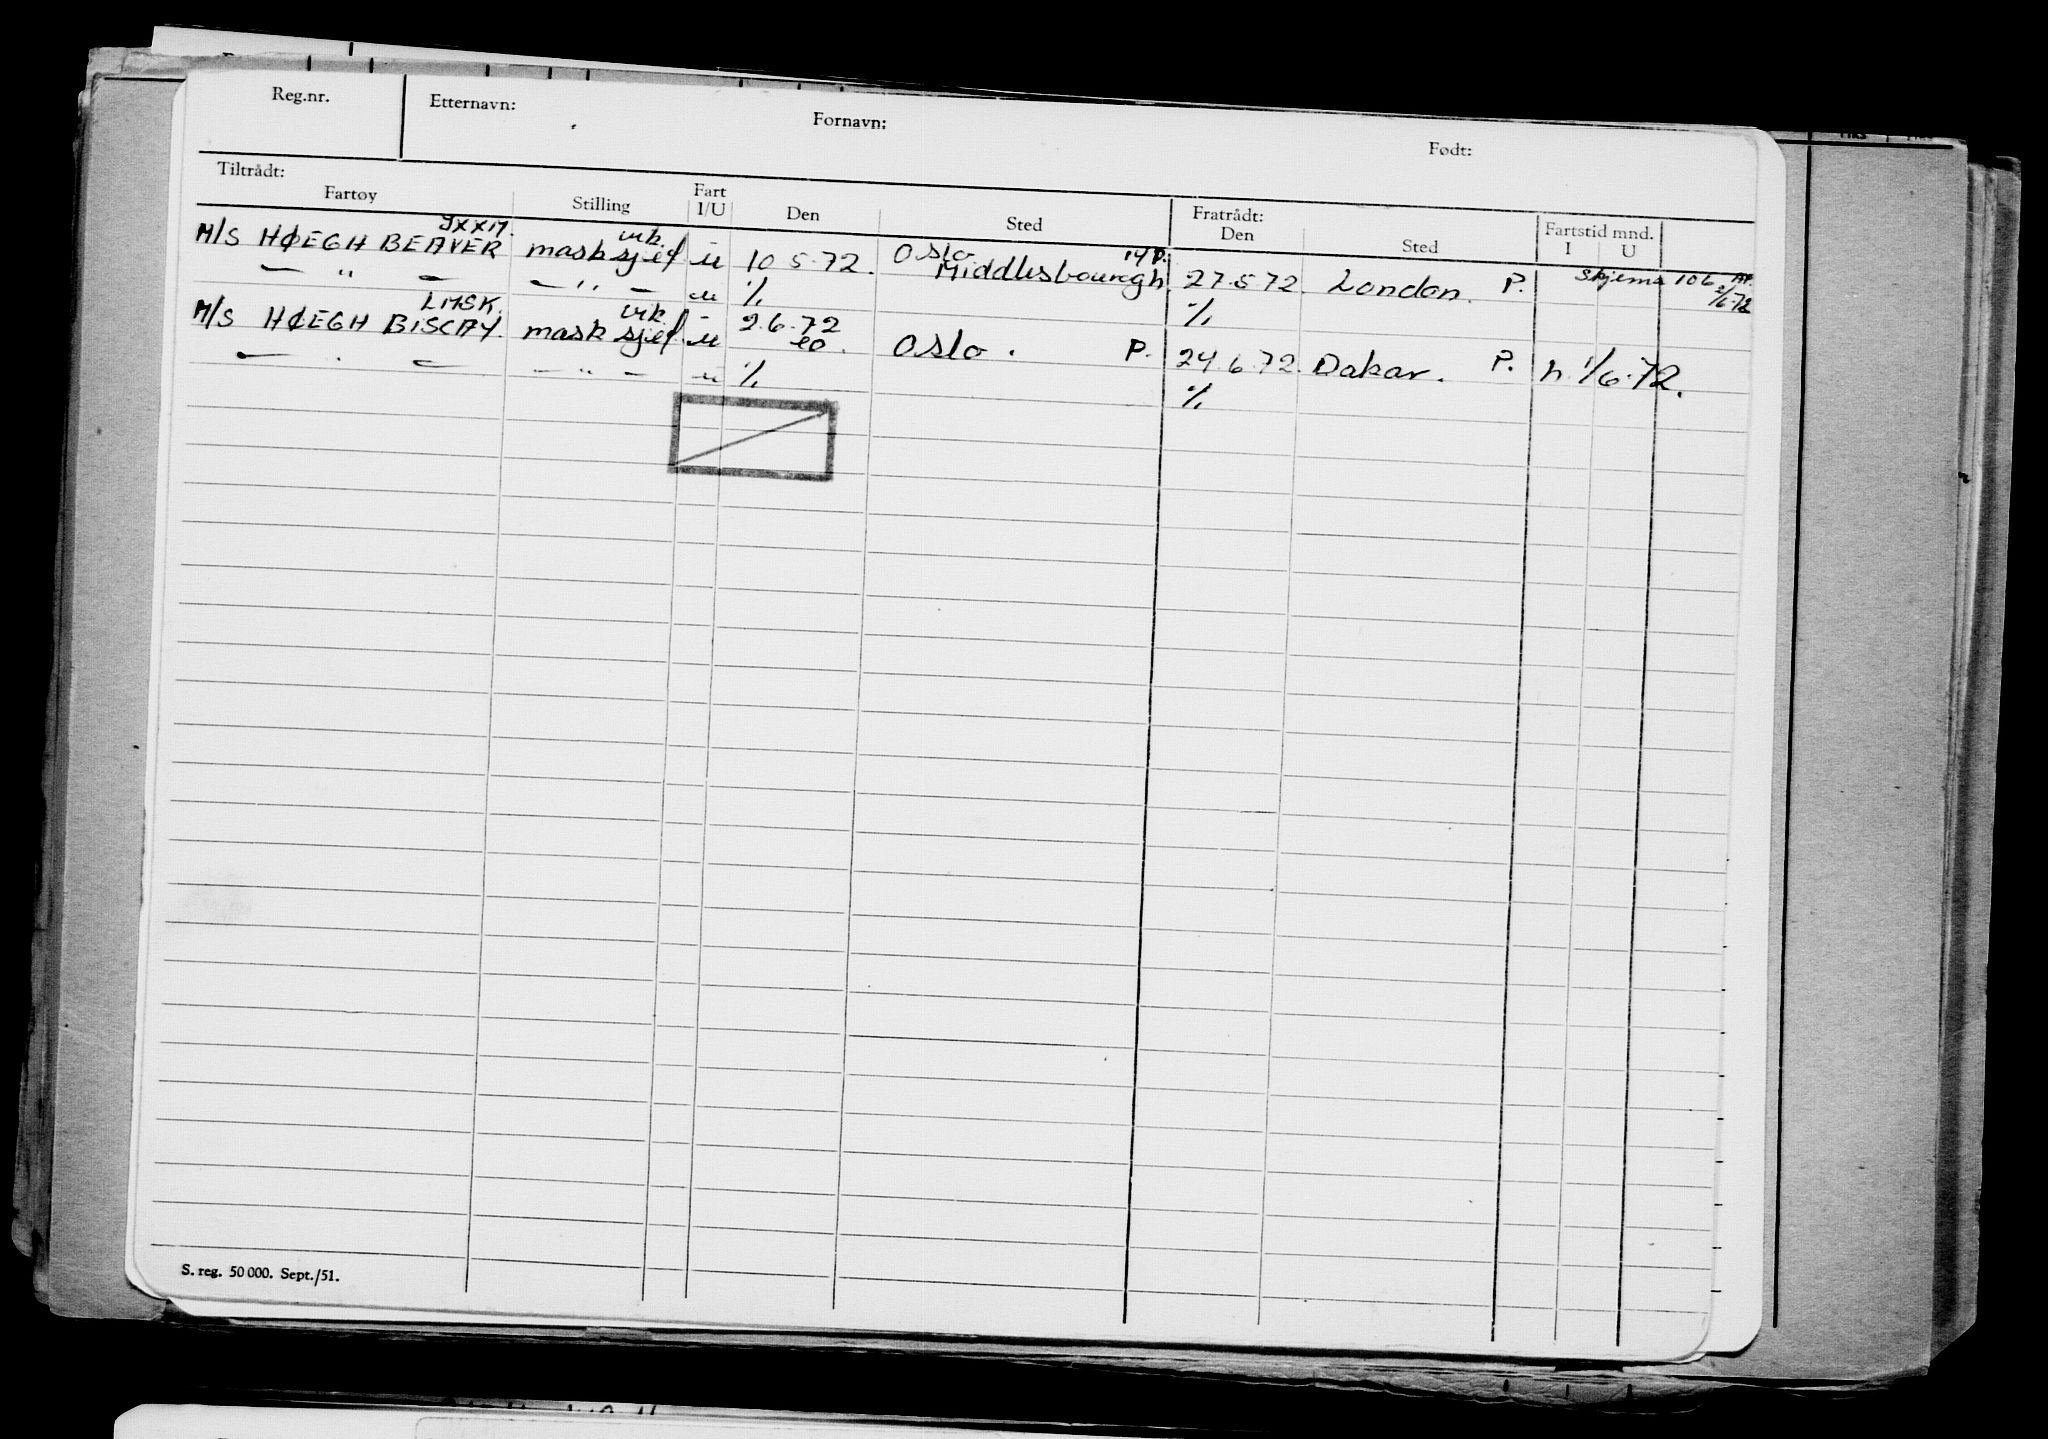 Reg.nr. Etternavn: Fornavn: Født:
Tiltrådt: Fratrådt:
Fartøy Stilling Fart I/U Den Sted Den Sted Fartstid mnd. I U
M/S HØEGH BEAVER mask sjef vik. u 10.5.72. Oslo 14 P. Middlesbourogh. 27.5.72. London. P. Skjema 106 2/6-72
— " — — " — u % %
LMSK.
M/S HØEGH BISCAY. mask sjef. vik. u 2.6.72 Oslo. P. 24.6.72. Dakar. P. n. 1/6.72.
— " — — " — u % %
S. reg. 50 000. Sept./51.